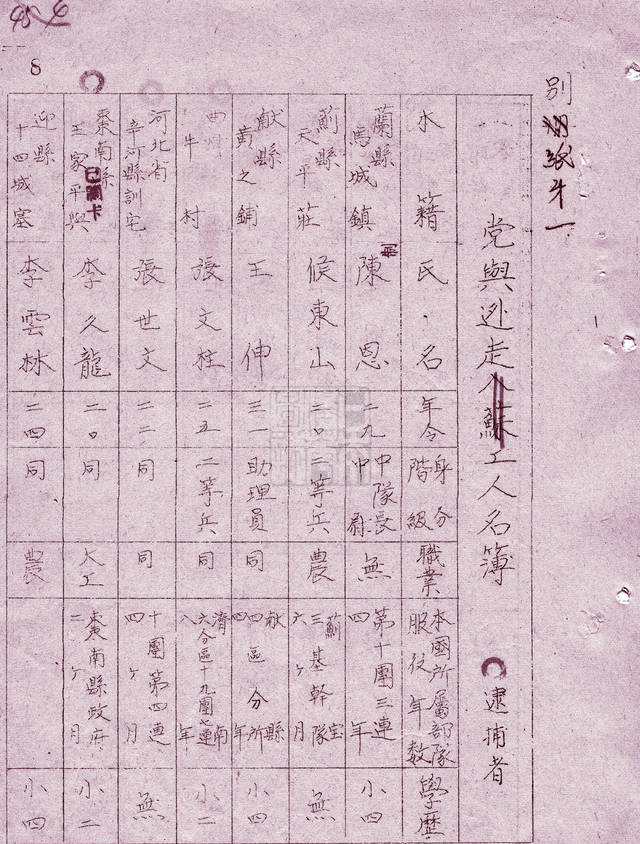 45
8
別紙才一
党與逃走入蘇工人名簿 逮捕者
本籍 氏・名 年令 身分階級 職業 本國所屬部隊服役年数 學歷
蘭縣馬城鎮 陳恩 二九 中隊長中尉 無 第十團三連四年 小四
薊縣天平莊 候東山 二〇 二等兵 農 薊宝三基幹隊六ヶ月 無
献縣黄之鋪 王伸 三一 助理員 同 献縣四區分所四年 小四
村 張文柱 二五 二等兵 同 濟南六分區十九團七連八年 小二
河北省辛河縣訓宅 張世文 二二 同 同 十團第四連四ヶ月 無
棗南縣王家平與 李久龍 二〇 同 大工 棗南縣政府二ヶ月 小二
已製卡
迎縣十四城寨 李雲林 二四 同 農 小四